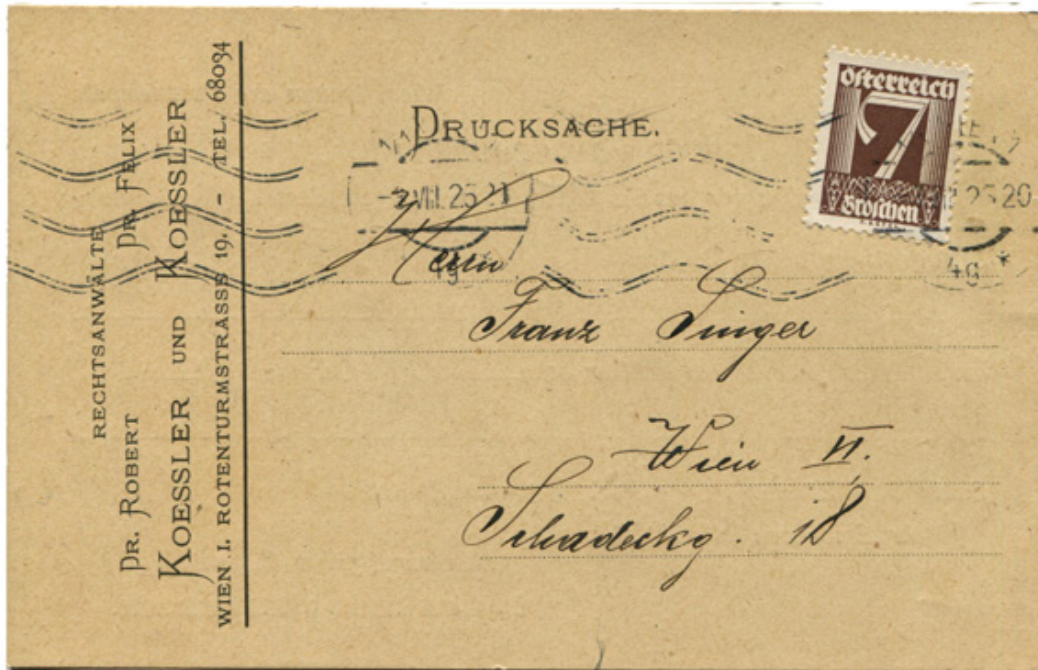 RECHTSANWÄLTE
DR. ROBERT DR. FELIX
KOESSLER UND KOESSLER
WIEN. I. ROTENTURMSTRASSE 19, – TEL. 68094
DRUCKSACHE.
österreich
7
Groschen
VIII.25 20
4g *
Herrn
Franz Singer
Wien VI.
Schadeckg. 18